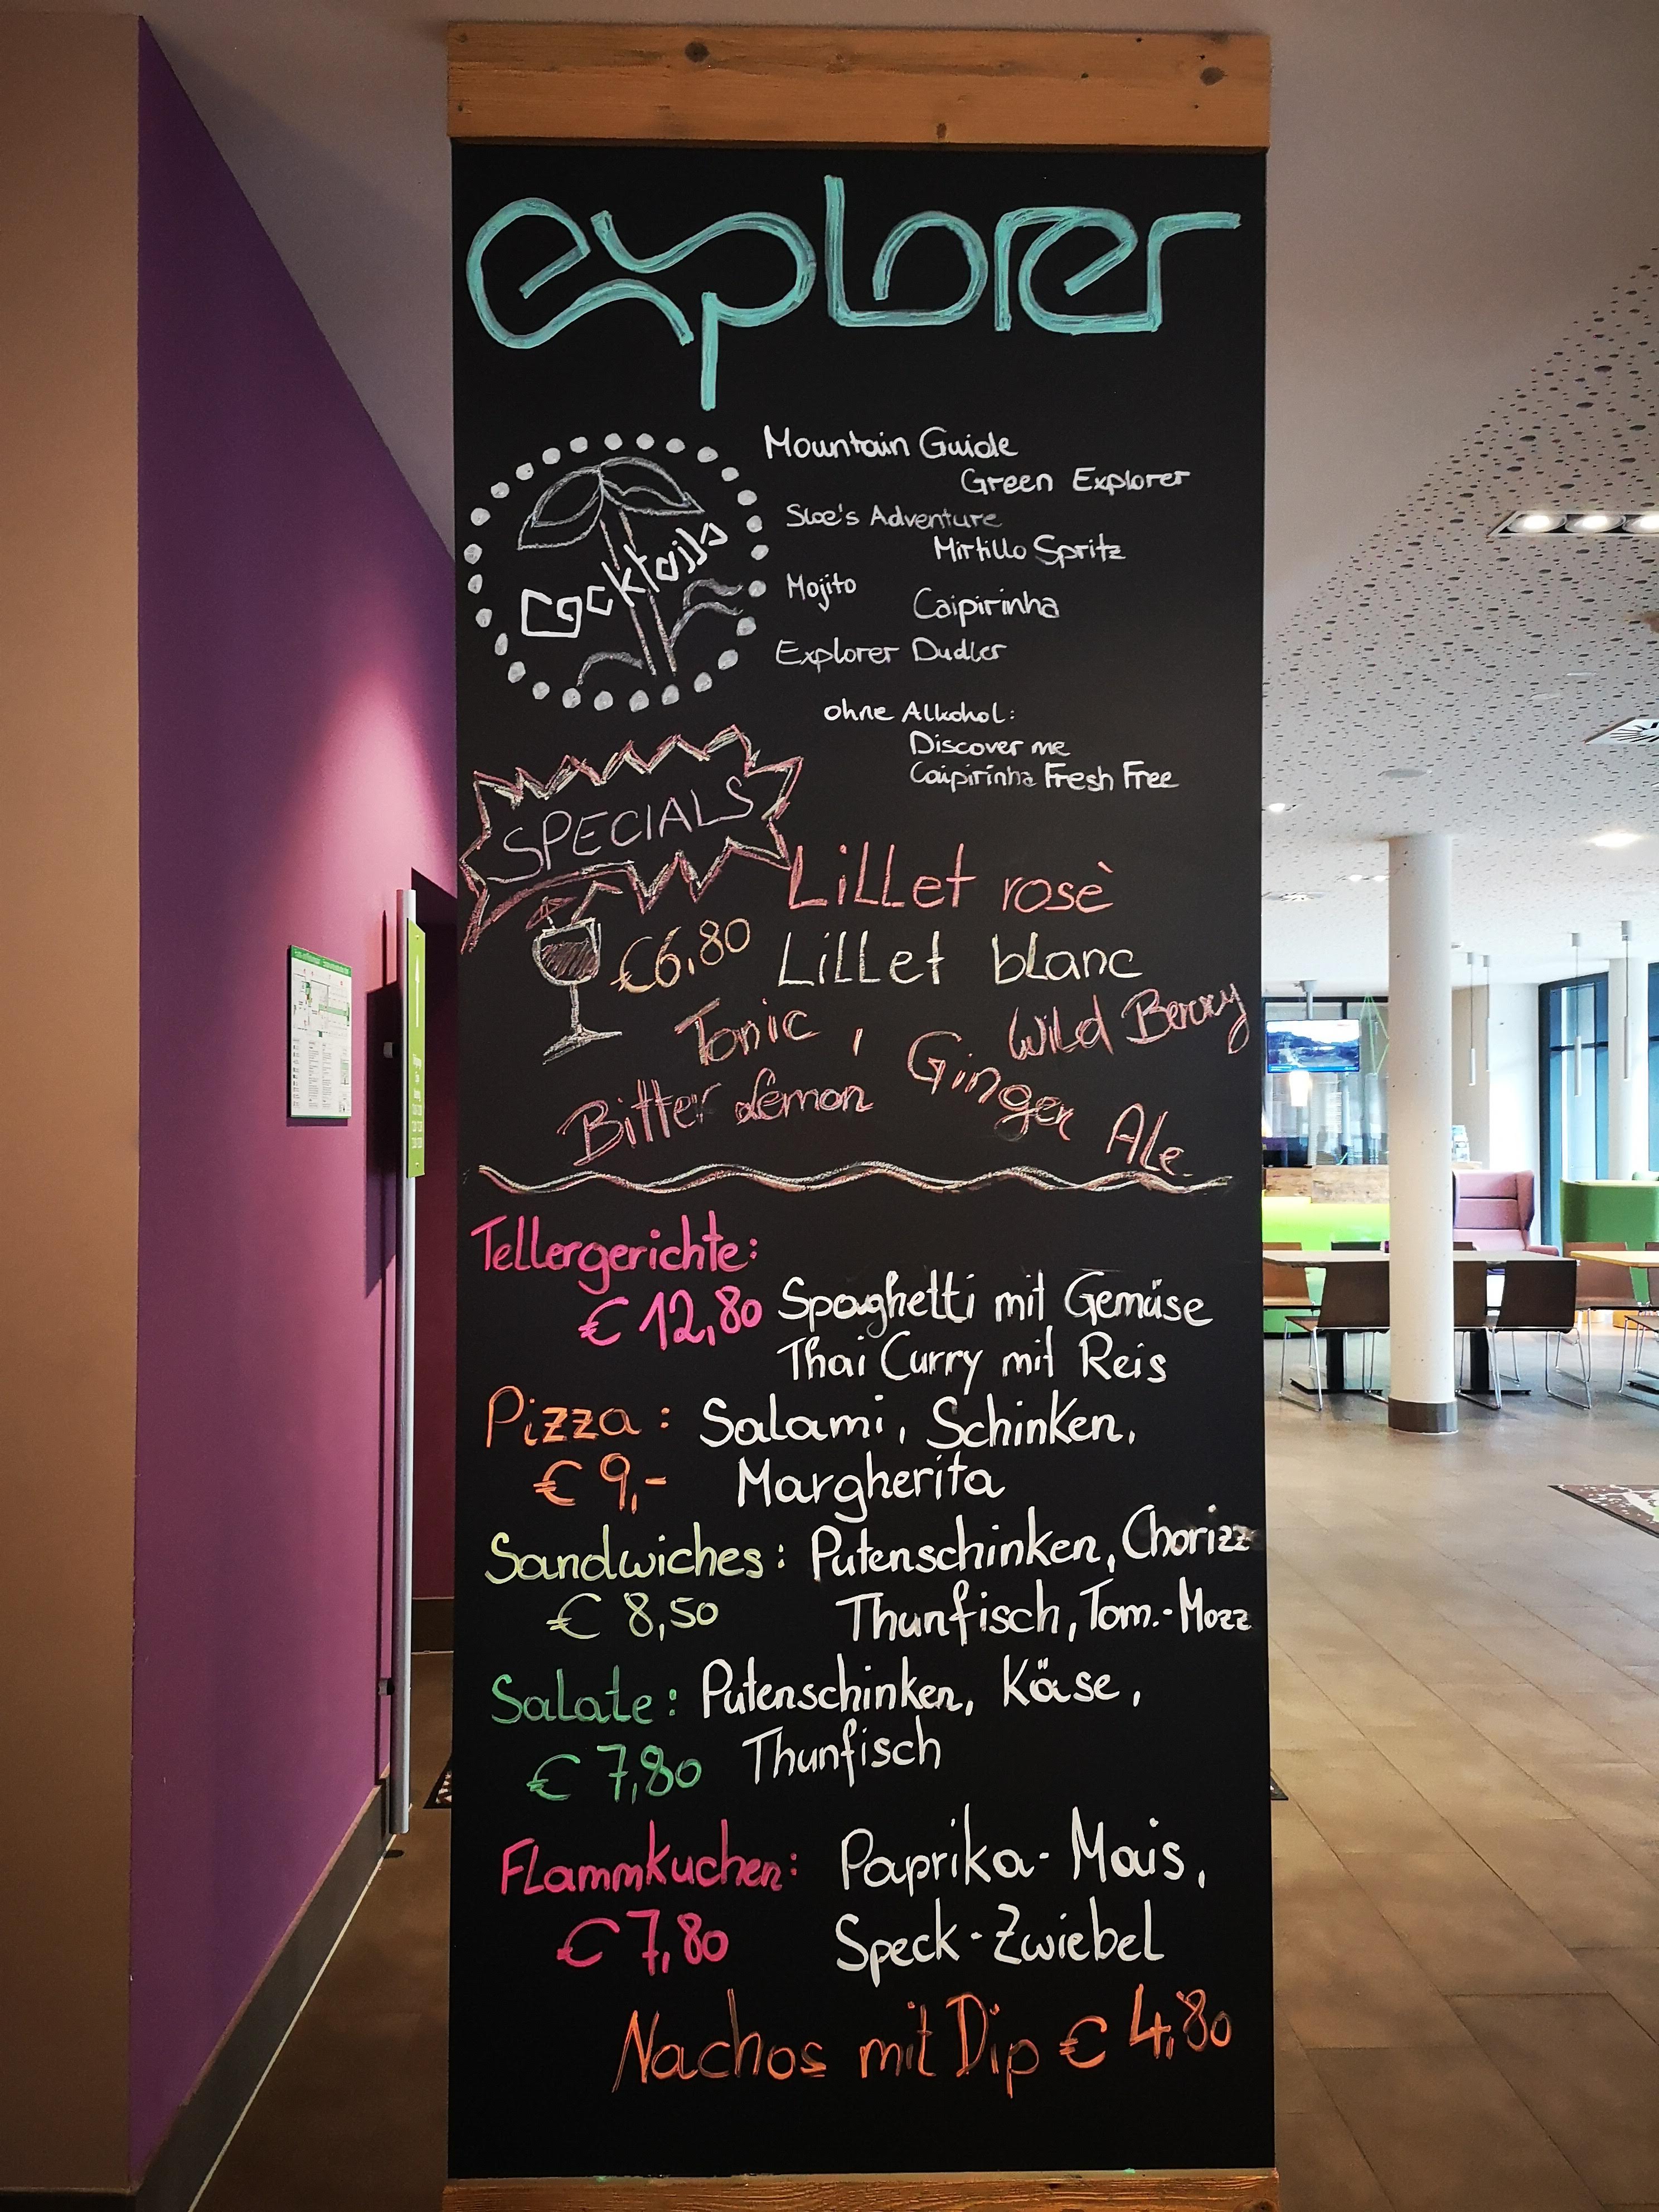 explorer
Mountain Guide
Green Explorer
Sloe's Adventure
Mirtillo Spritz
Cocktails
Mojito
Caipirinha
Explorer Dudler
ohne Alkohol:
Discover me
Caipirinha Fresh Free
SPECIALS
Lillet rosè
€6,80 Lillet blanc
Tonic, Wild Berry
Bitter Lemon Ginger Ale
Tellergerichte:
€ 12,80 Spaghetti mit Gemüse
Thai Curry mit Reis
Pizza: Salami, Schinken,
€ 9,- Margherita
Sandwiches: Putenschinken, Chorizz
€ 8,50 Thunfisch, Tom.-Mozz
Salate: Putenschinken, Käse,
€ 7,80 Thunfisch
Flammkuchen: Paprika-Mais,
€ 7,80 Speck-Zwiebel
Nachos mit Dip € 4,80